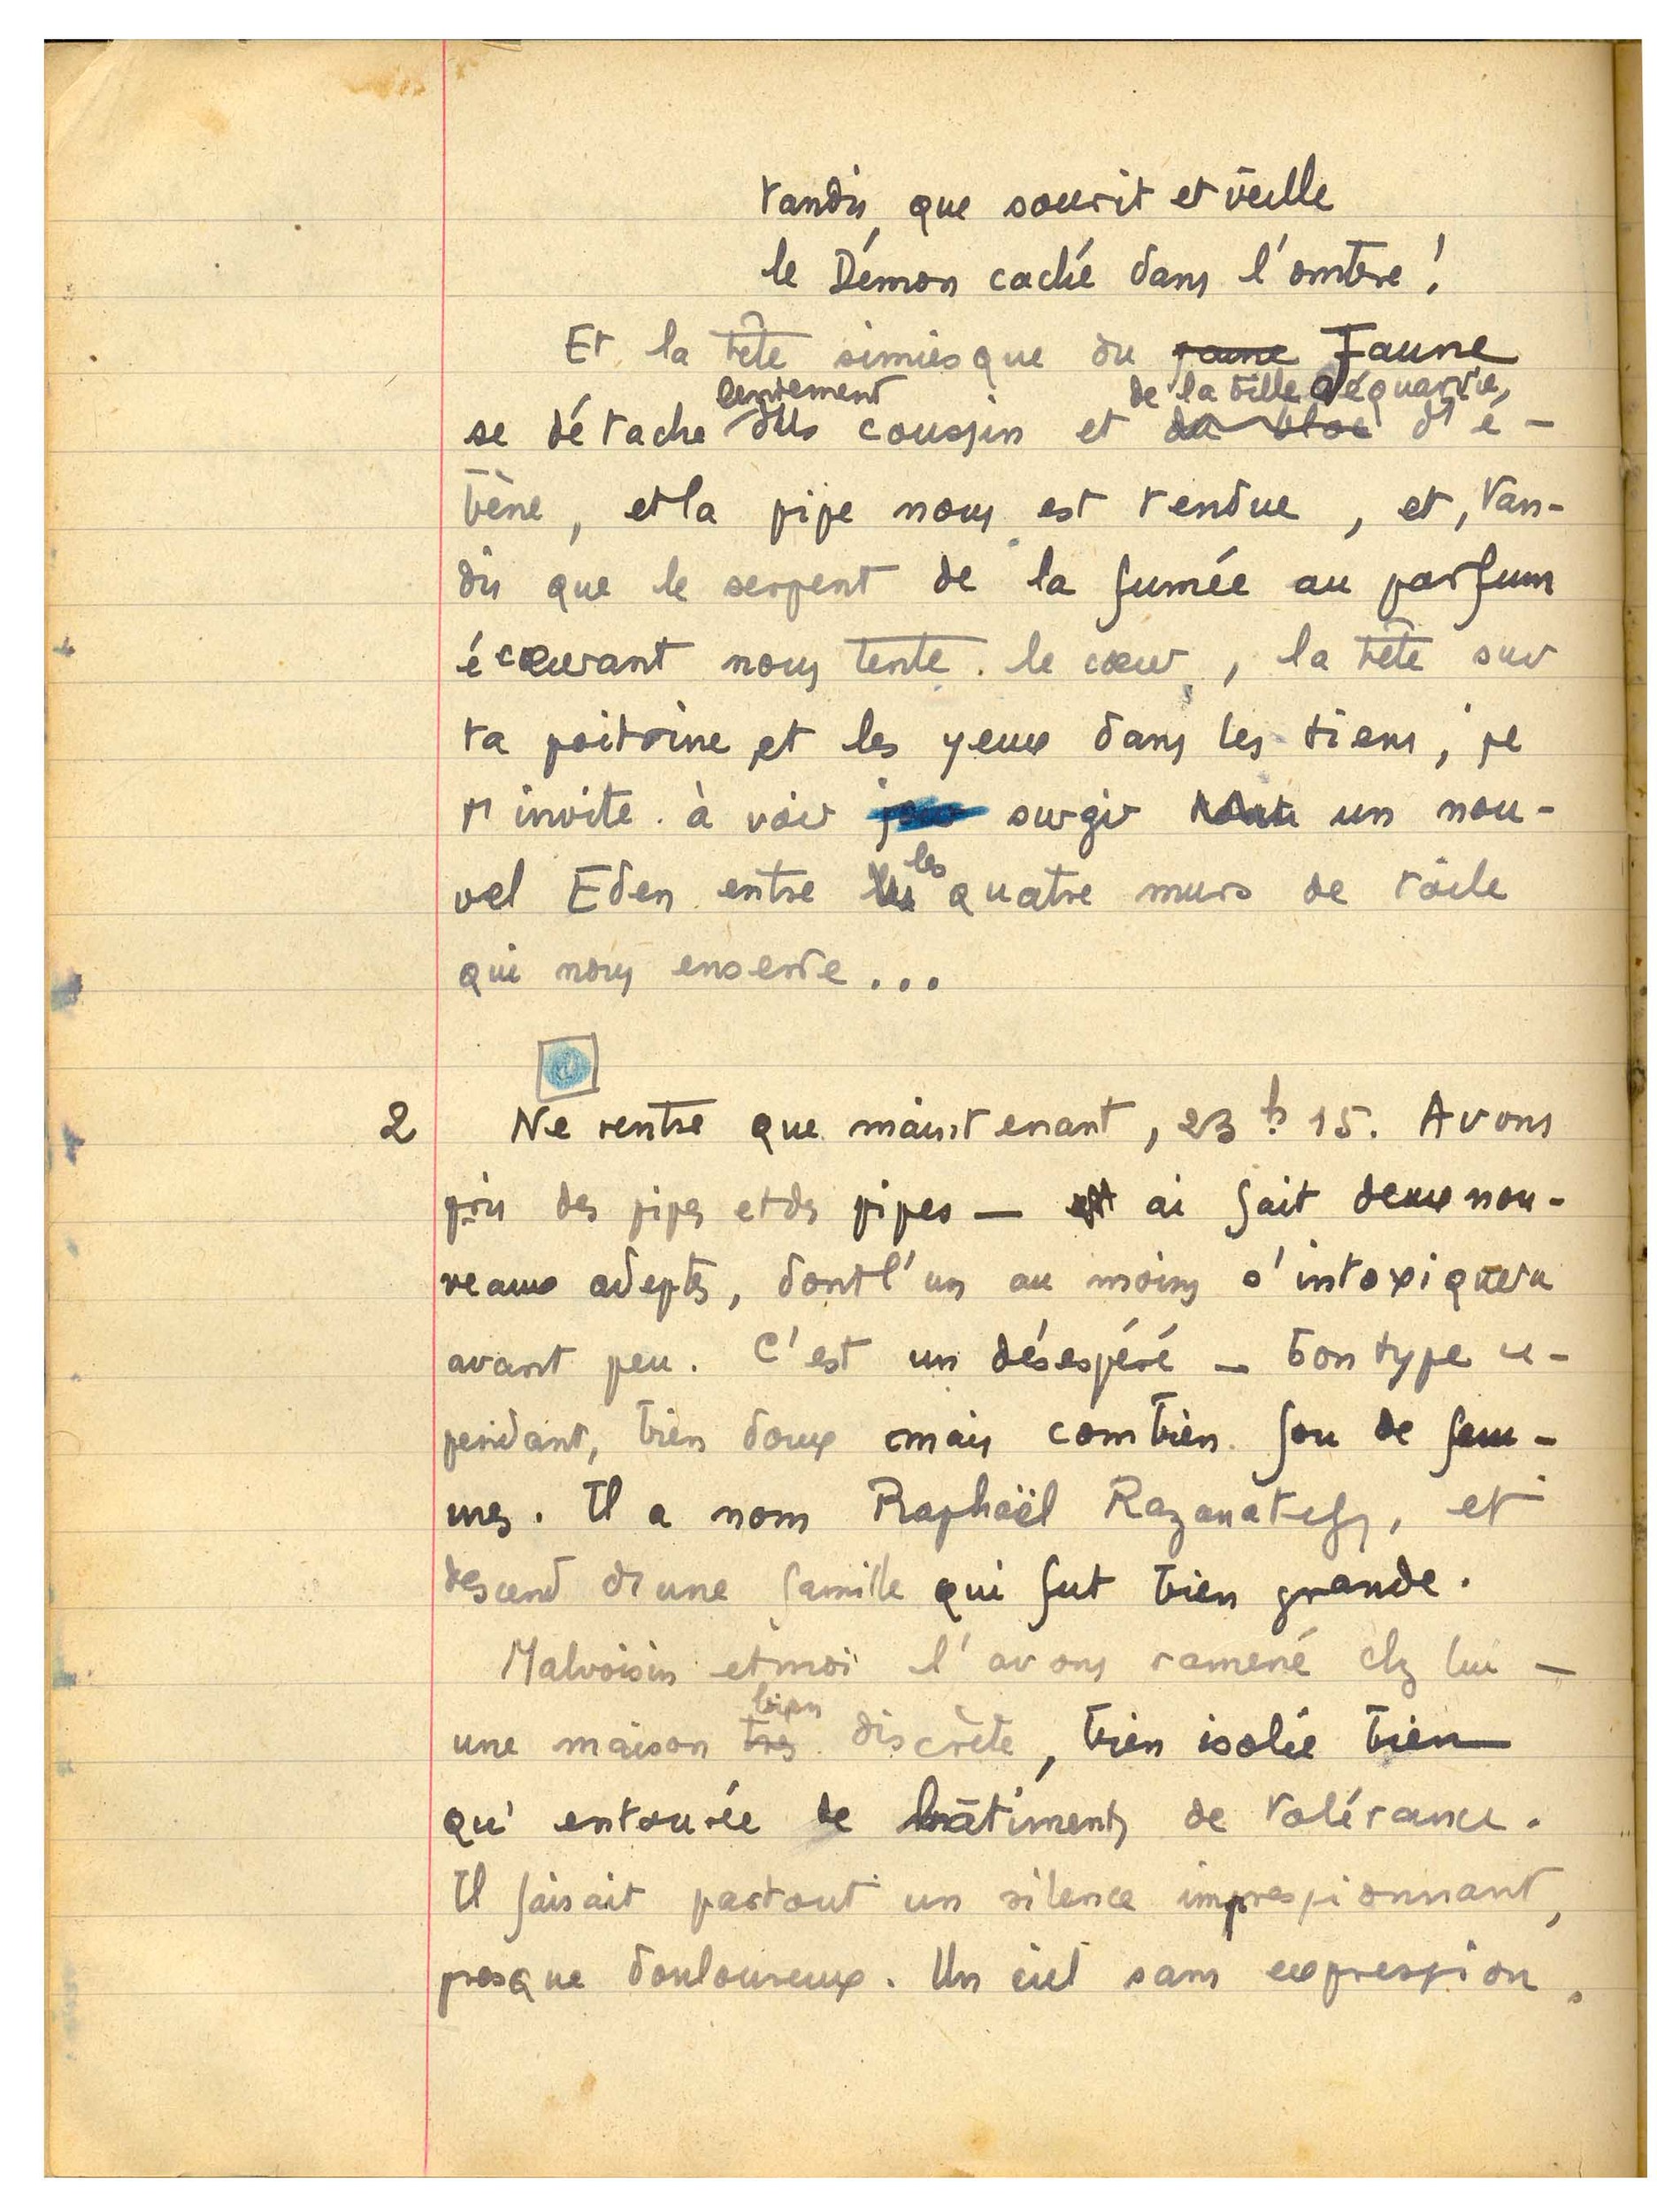 tandis que sourit et veille
le Démon caché dans l'ombre !
Et la tête simiesque du faune Faune
lentement de la bille équarrie
se détache du coussin et du bloc d'é-
bène, et la pipe nous est tendue, et, tan-
dis que le serpent de la fumée au parfum
écœurant nous tente le cœur, la tête sur
ta poitrine et les yeux dans les tiens, je
t'invite à voir surgir un nou-
vel Eden entre les quatre murs de toile
qui nous enserre...
2 Ne rentre que maintenant, 23 h 15. Avons
pris des pipes et des pipes — ai fait deux nou-
veaux adeptes, dont l'un au moins s'intoxiquera
avant peu. C'est un désespéré — bon type ce-
pendant, bien doux mais combien fou de fem-
mes. Il a nom Raphaël Razanatefy, et
descend d'une famille qui fut bien grande.
Malvoisin et moi l'avons ramené chez lui —
bien
une maison très discrète, bien isolée bien
qu'entourée de bâtiments de tolérance.
Il faisait partout un silence impressionnant,
presque douloureux. Un ciel sans expression,